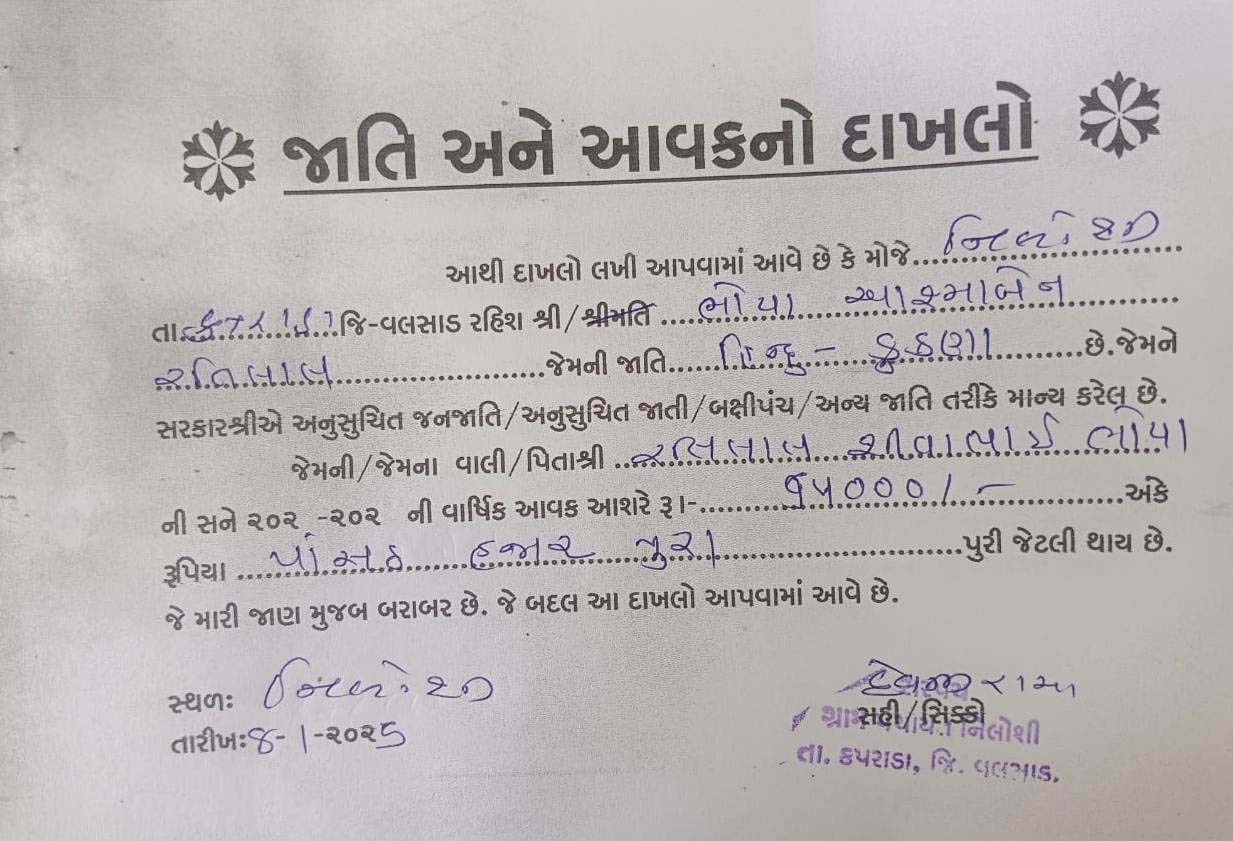 જાતિ અને આવકનો દાખલો
આથી દાખલો લખી આપવામાં આવે છે કે મોજે નિલોશી
તા. કપરાડા જિ-વલસાડ રહિશ શ્રી/શ્રીમતિ ભોયા આશ્માબેન
રતિલાલ જેમની જાતિ હિન્દુ - કુકણા છે.જેમને
સરકારશ્રીએ અનુસુચિત જનજાતિ/અનુસુચિત જાતી/બક્ષીપંચ/અન્ય જાતિ તરીકે માન્ય કરેલ છે.
જેમની/જેમના વાલી/પિતાશ્રી રતિલાલ શીવાભાઈ ભોયા
ની સને ૨૦૨ -૨૦૨ ની વાર્ષિક આવક આશરે રૂા- ૬૫૦૦૦/- અંકે
રૂપિયા પાંસઠ હજાર પુરા પુરી જેટલી થાય છે.
જે મારી જાણ મુજબ બરાબર છે. જે બદલ આ દાખલો આપવામાં આવે છે.
સ્થળઃ નિલોશી
તારીખઃ 8-1-૨૦૨5
સહી/સિક્કો
ગ્રામ પંચાયત નિલોશી
તા. કપરાડા, જિ. વલસાડ.